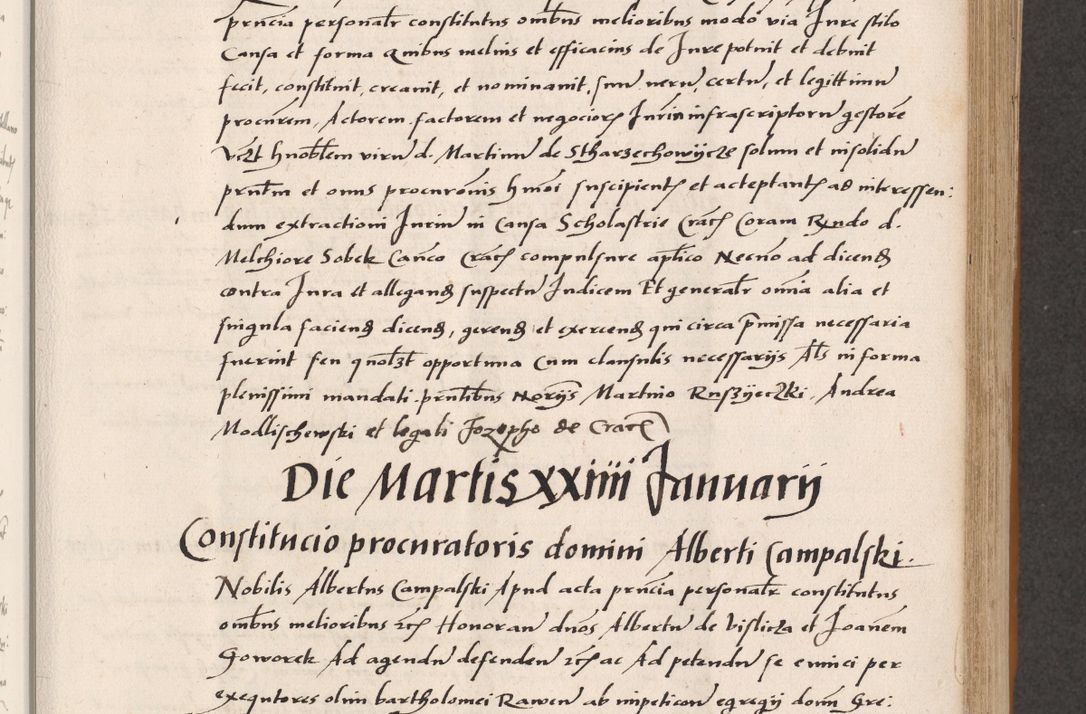 prncia personalr constitutus omibus melioribus modo via Jure stilo
Causa et forma quibus melius et efficacius de Jure potuit et debuit
fecit, constituit, creauit, et nominauit, suu veru, certu, et legittimu
procurem, Actorem factorem et negocior Jurin infrascriptoru gestore
Vczt hnoblem viru d. Martinu de Stharzechowycze solum et insolidu
prntm et onus procuronis hmoi suscipient et acceptant ad interessen:
dum extractioni Juriu in causa Scholastrie Crac Coram Rndo d.
Melchiore Sobek Canco Crac compulsure aplico Necno ad dicend
contra Jura et allegand suspectu Judicem Et generalr omia alia et
singula faciend dicend, gerend et exercend qui circa pmissa necessaria
fuerint seu quolzt opportuna Cum clausulis necessarijs Als in forma
plenissimi mandati prntibus Norijs Martino Ruszyeczki, Andrea
Modlischewski et legati Jozepho de Crac
Die Martis xxiiii Januarij
Constitucio procuratoris domini Alberti Campalski.
Nobilis Albertus Campalski Apud acta prncia personalr constitutus
omibus melioribus etc Honoran duos Albertu de Vislicza et Joanem
Goworek Ad agendu defenden etc ac Ad petendu se eminci per
exequtores olim bartholomei Rawen ab inpeticon egregij domi Gre: